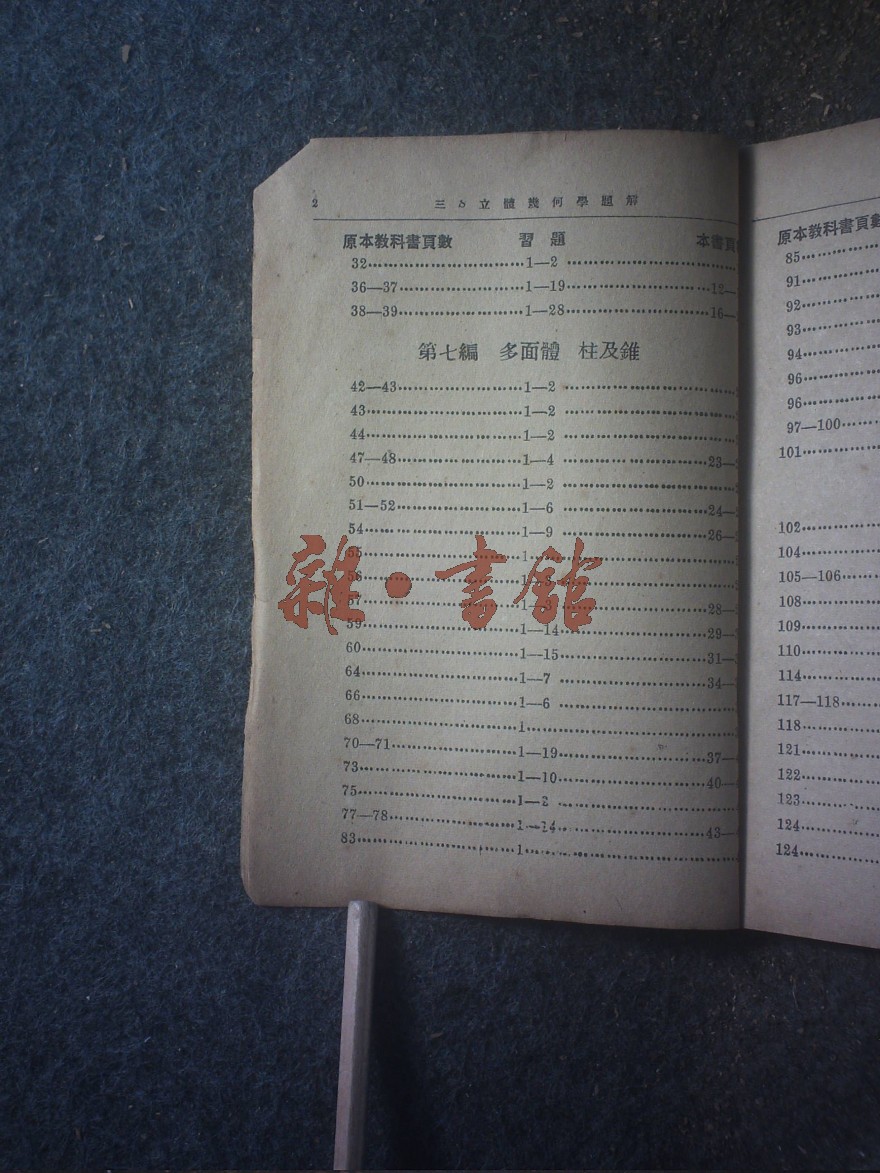 2 三S立體幾何學題解
原本教科書頁數 習題 本書頁
32……1—2……
36—37……1—19……12—
38—39……1—28……16—
第七編 多面體 柱及錐
42—43……1—2……
43……1—2……
44……1—2……
47—48……1—4……23—
50……1—2……
51—52……1—6……24—
54……1—9……26—
55……1……
56……1—3……
57……1—3……28—
59……1—14……29—
60……1—15……31—
64……1—7……34—
66……1—6……
68……1……
70—71……1—19……37—
73……1—10……40—
75……1—2……
77—78……1—14……43—
83……1……
雜·書館
原本教科書頁數
85……
91……
92……
93……
94……
96……
96……
97—100……
101……
102……
104……
105—106……
108……
109……
110……
114……
117—118……
118……
121……
122……
123……
124……
124……